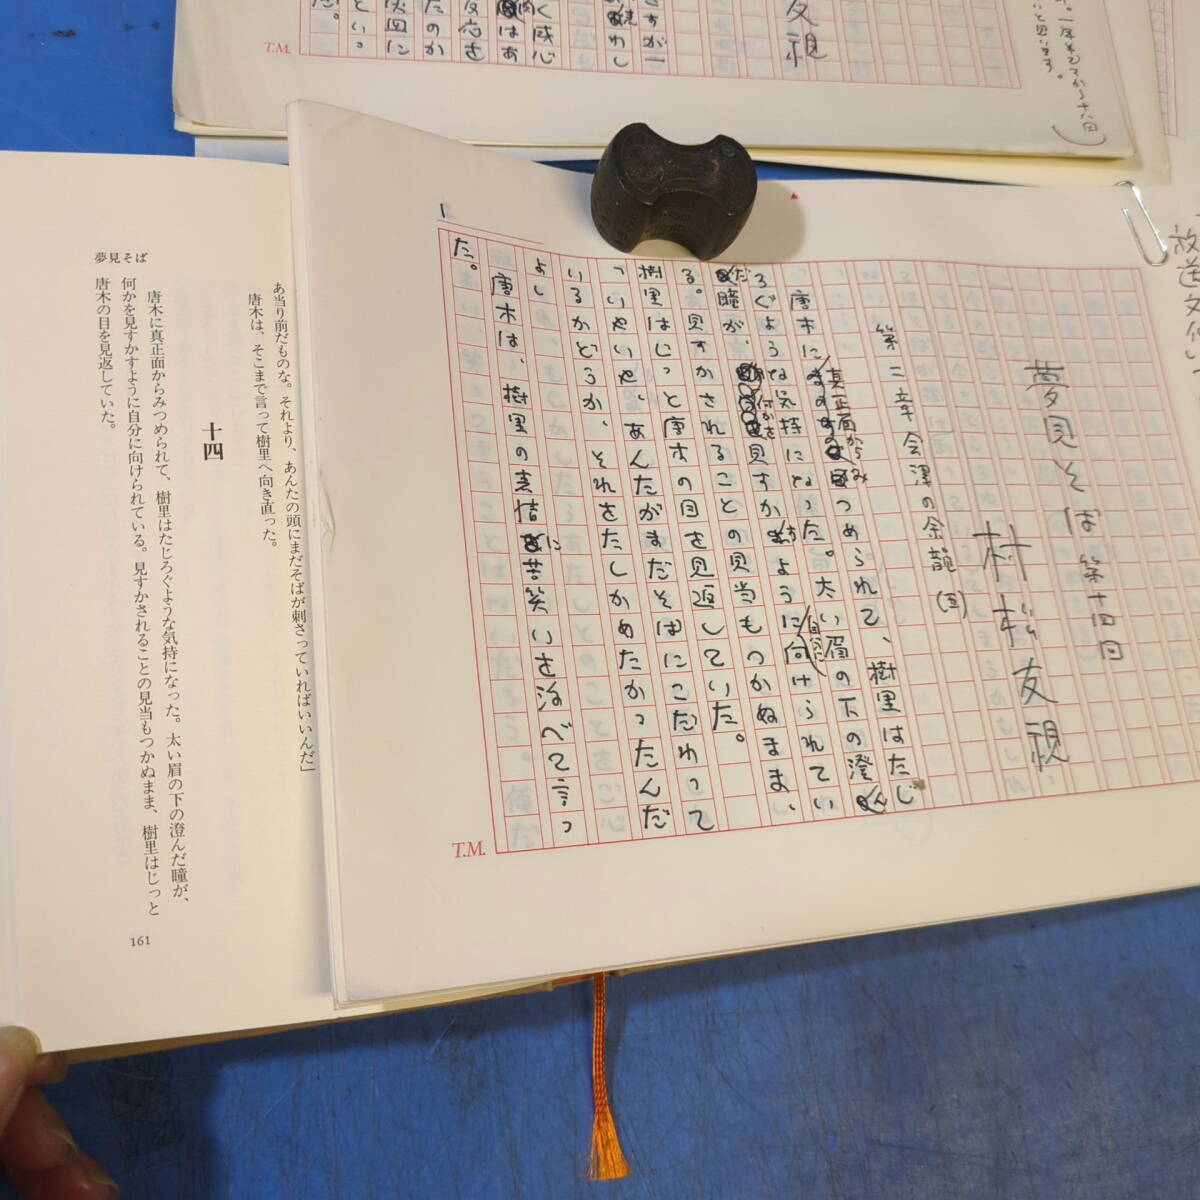 夢見そば 第十四回
村松友視
第二章 会津の余韻(五)
唐木に真正面からみつめられて、樹里はたじ
ろぐような気持になった。太い眉の下の澄んだ
瞳が、何かを見すかすように自分に向けられてい
る。見すかされることの見当もつかぬまま、
樹里はじっと唐木の目を見返していた。
「いやいや、あんたがまだそばにこだわって
いるかどうか、それをたしかめたかったんだ
よ」
唐木は、樹里の表情に苦笑いを浮べて言っ
た。
1
T.M.
あ当り前だものな。それより、あんたの頭にまだそばが刺さっていればいいんだ」
唐木は、そこまで言って樹里へ向き直った。
十四
唐木に真正面からみつめられて、樹里はたじろぐような気持になった。太い眉の下の澄んだ瞳が、
何かを見すかすように自分に向けられている。見すかされることの見当もつかぬまま、樹里はじっと
唐木の目を見返していた。
夢見そば
161
友視
T.M.